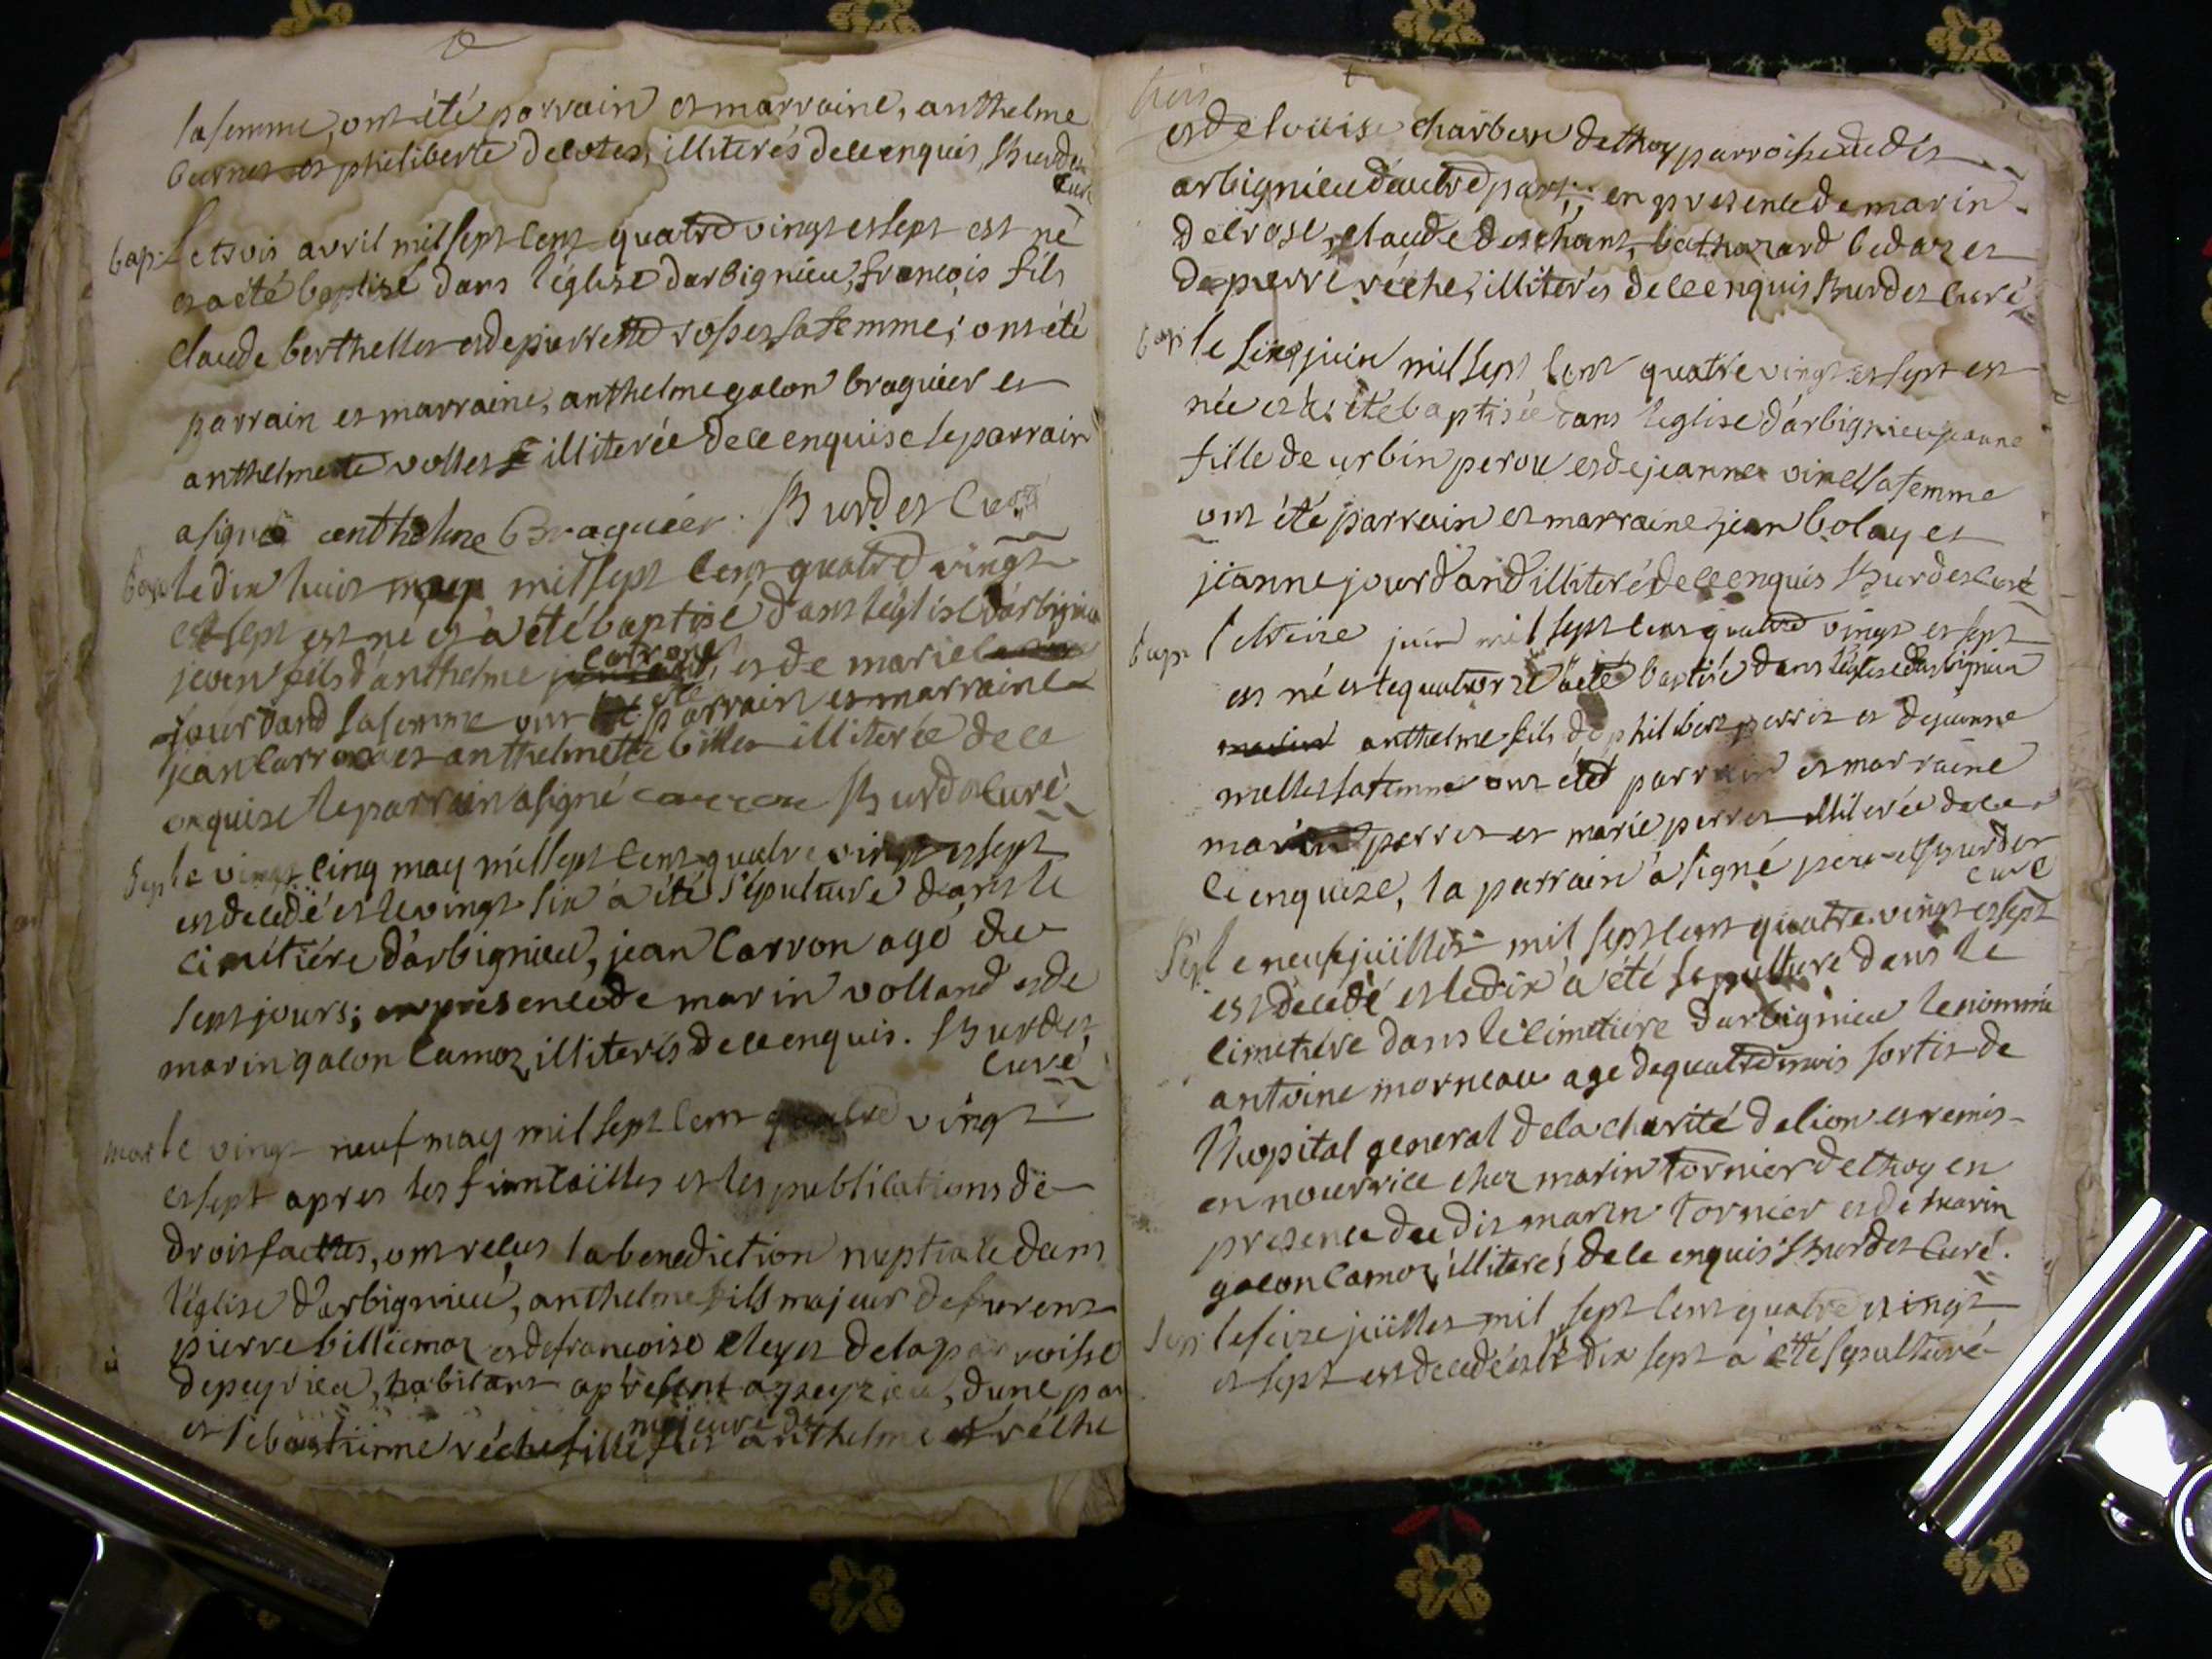 sa femme, ont été parrain et marraine, anthelme
burnet et philiberte delotes, illiterés de ce enquis, Burdet
curé
bap: Le trois avril mil sept cent quatre vingt et sept est né
et a été baptisé dans l'église d'arbignieu, francois fils
claude berthellet et de pierrette rosset sa femme; ont été
parrain et marraine, anthelme galon braguier et
anthelmette vollet illiterée de ce enquise le parrain
a signé anthelme Braguier. Burdet Curé
bap: le dix huit may mil sept cent quatre vingt
et sept est né et a été baptisé dans l'église d'arbignieu
jean fils d'anthelme carron et de marie
jourdand sa femme ont été parrain et marraine
jean carron et anthelmette billet illiterée de ce
enquise le parrain a signé carron Burdet curé
Sep: le vingt cinq may mil sept cent quatre vingt et sept
est decedé et le vingt six a été sépulturé dans le
cimétiére d'arbignieu, jean Carron agé de
sept jours; en présence de marin volland et de
marin galon Camoz illiterés de ce enquis. Burdet
curé
mar le vingt neuf may mil sept cent quatre vingt
et sept apres les fiancailles et les publications de
droit faittes, ont recus la benediction nuptiale dans
l'église d'arbignieu, anthelme fils majeur de furent
pierre billiemaz et de francoise cleyet de la parroisse
de peyrieu, habitant apresent a peyrieu, d'une par
et sebastienne réche fille majeure de anthelme réche
trois
et de louise charbon de thoy parroisse dudit
arbignieu d'autre part; en presence de marin
delrose, claude deschant, bathazard bedaz et
de pierre réche, illiterés de ce enquis Burdet curé
bap: le Cinq juin mil sept cent quatre vingt et sept est
née et a été baptisée dans l'eglise d'arbignieu jeanne
fille de urbin perou et de jeanne vinel sa femme
ont été parrain et marraine jean bolay et
jeanne jourdand illiterés de ce enquis Burdet curé
bap: le treize juin mil sept cent quatre vingt et sept
est né et le quatorze a été baptisé dans l'église d'arbignieu
anthelme fils de philibert perret et de jeanne
mellet sa femme ont été parrain et marraine
marin perret et marie perret illiterée de ce
ce enquize, la parrain a signé perret Burdet
curé
Sep: le neuf juillet mil sept cent quatre vingt et sept
est decedé et le dix a été sepulture dans le
cimetiére dans le cimetiére d'arbignieu le nommé
antoine morneau age de quatre mois sortis de
l'hopital general de la charité de lion et remis
en nourrice chez marin tornier de thoy en
presence du dit marin tornier et de marin
galon Camoz, illiterés de ce enquis Burdet Curé.
Sep: le seize juillet mil sept cent quatre vingt
et sept est decedé et le dix sept a été sepulturé